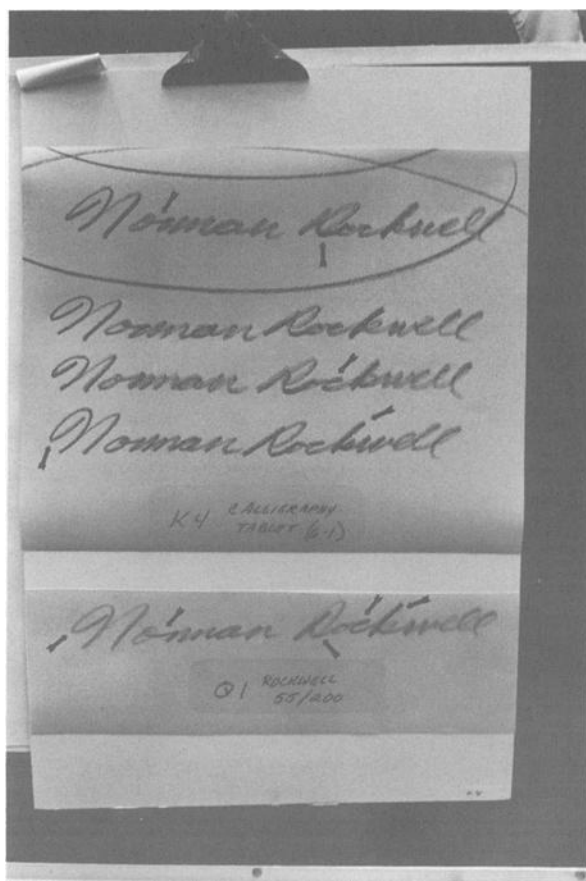 Norman Rockwell
Norman Rockwell
Norman Rockwell
Norman Rockwell
K4 CALLIGRAPHY
TABLET (6-1)
Norman Rockwell
Q1 ROCKWELL
55/200